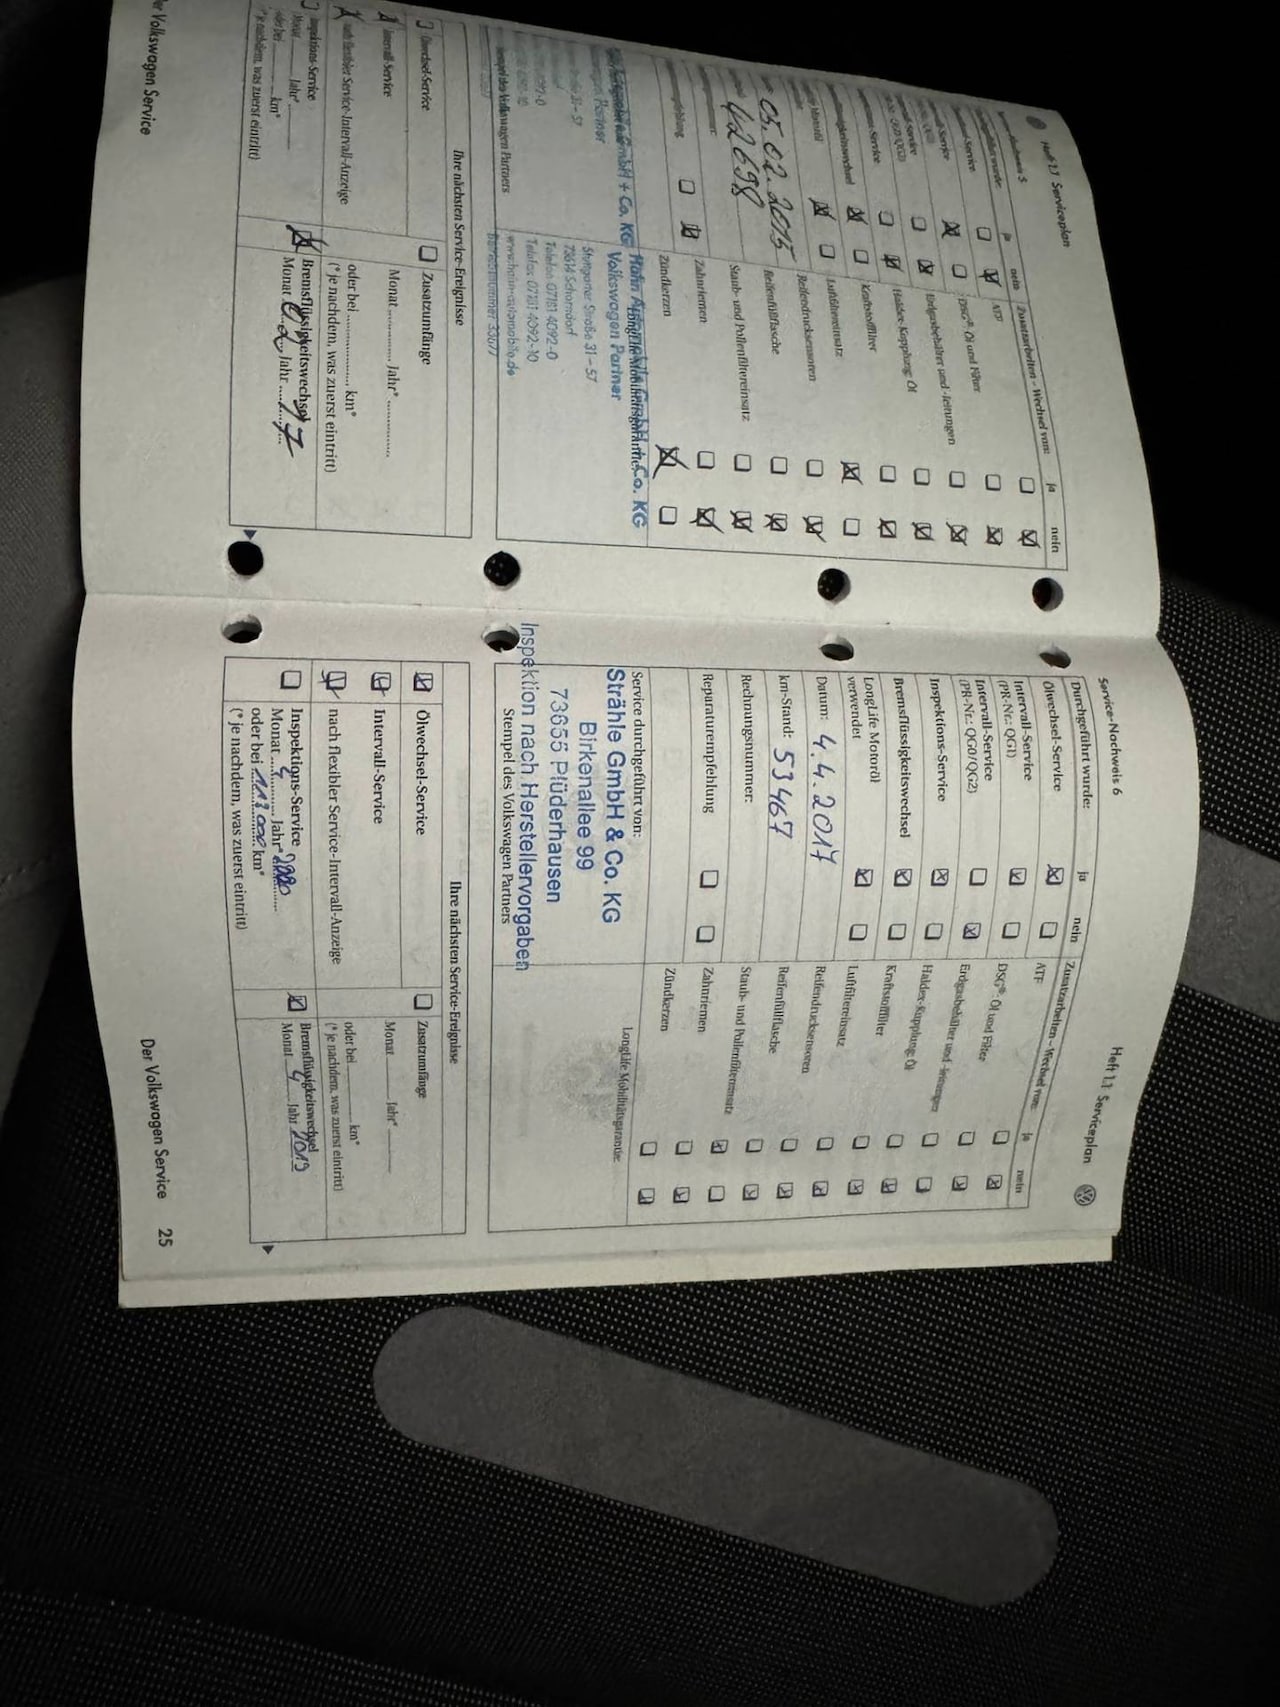 Heft 1.1 Serviceplan
ja
nein
Zusatzarbeiten - Wechsel von:
ja
nein
ATF
DSG®: Öl und Filter
Erdgasbehälter und -leitungen
Haldex-Kupplung: Öl
Kraftstofffilter
Luftfiltereinsatz
Reifendrucksensoren
Reifenfüllflasche
Staub- und Pollenfiltereinsatz
Zahnriemen
Zündkerzen
05.02.2015
42698
Hahn Automobile GmbH + Co. KG
Volkswagen Partner
Stuttgarter Straße 31 - 57
73614 Schorndorf
Telefon 07181 4092-0
Telefax 07181 4092-10
www.hahn-automobile.de
Stempel des Volkswagen Partners
Ihre nächsten Service-Ereignisse
Ölwechsel-Service
Intervall-Service
nach flexibler Service-Intervall-Anzeige
Inspektions-Service
Monat Jahr*
oder bei km*
(* je nachdem, was zuerst eintritt)
Zusatzumfänge
Monat Jahr*
oder bei km*
(* je nachdem, was zuerst eintritt)
Bremsflüssigkeitswechsel
Monat 02 Jahr 17
Der Volkswagen Service
Heft 1.1 Serviceplan
Service-Nachweis 6
Durchgeführt wurde:
ja
nein
Ölwechsel-Service
Intervall-Service
(PR-Nr.: QG1)
Intervall-Service
(PR-Nr.: QG0/QG2)
Inspektions-Service
Bremsflüssigkeitswechsel
LongLife Motoröl
verwendet
Datum: 4.4.2017
km-Stand: 53467
Rechnungsnummer:
Reparaturempfehlung
Zusatzarbeiten - Wechsel von:
ja
nein
ATF
DSG®: Öl und Filter
Erdgasbehälter und -leitungen
Haldex-Kupplung: Öl
Kraftstofffilter
Luftfiltereinsatz
Reifendrucksensoren
Reifenfüllflasche
Staub- und Pollenfiltereinsatz
Zahnriemen
Zündkerzen
Service durchgeführt von:
Strähle GmbH & Co. KG
Birkenallee 99
73655 Plüderhausen
Inspektion nach Herstellervorgaben
Stempel des Volkswagen Partners
LongLife Mobilitätsgarantie:
Ihre nächsten Service-Ereignisse
Ölwechsel-Service
Intervall-Service
nach flexibler Service-Intervall-Anzeige
Inspektions-Service
Monat 4 Jahr* 2020
oder bei 113000 km*
(* je nachdem, was zuerst eintritt)
Zusatzumfänge
Monat Jahr*
oder bei km*
(* je nachdem, was zuerst eintritt)
Bremsflüssigkeitswechsel
Monat 4 Jahr 2019
Der Volkswagen Service 25